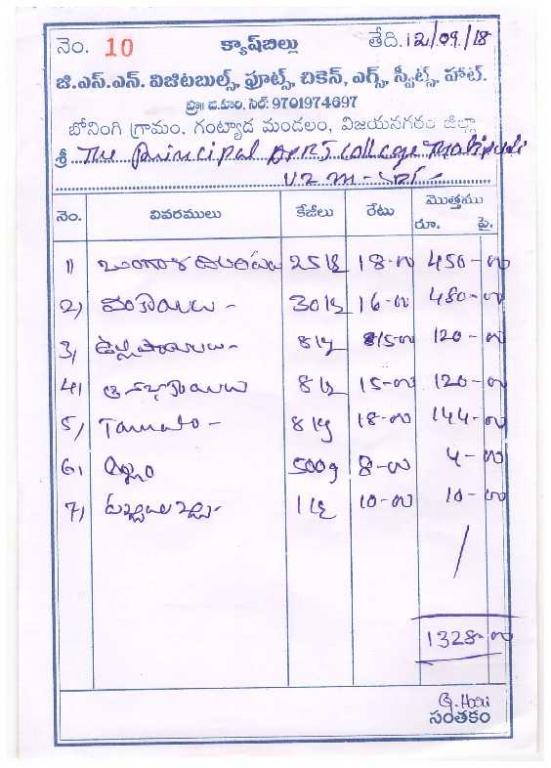 నెం. 10 క్యాష్‌బిల్లు తేది. 12/09/18
జి.ఎస్.ఎన్. విజిటబుల్స్, ఫ్రూట్స్, చికెన్, ఎగ్స్, స్వీట్స్, హాట్.
ప్రొ॥ జి.హరి. సెల్: 9701974697
బోనింగి గ్రామం, గంట్యాడ మండలం, విజయనగరం జిల్లా
శ్రీ The Principal APRJ College
నెం. వివరములు కేజీలు రేటు మొత్తము
రూ. పై.
1) బంగాళ దుంపలు 25 kg 18-00 450-00
2) వంకాయలు - 30 kg 16-00 480-00
3) ఉల్లిపాయలు - 8 kg 15-00 120-00
4) 8 kg 15-00 120-00
5) Tamato - 8 kg 18-00 144-00
6) అల్లం 500g 8-00 4-00
7) 1 kg 10-00 10-00
1328-00
G. Hari
సంతకం